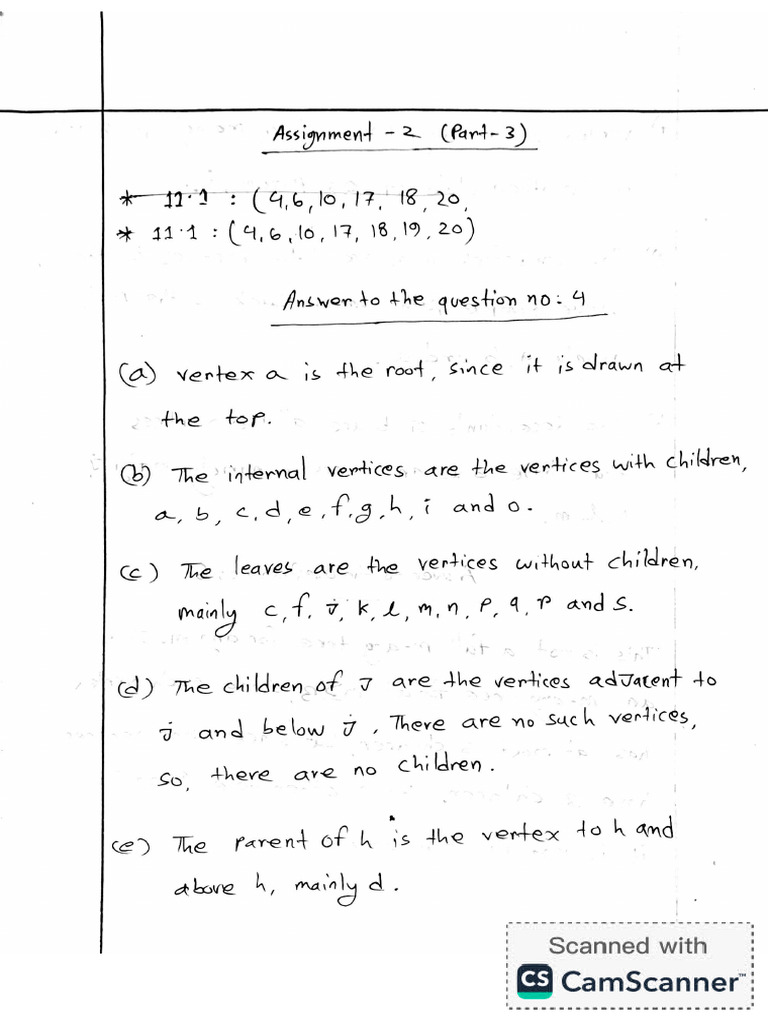 Assignment - 2 (Part-3)
* 11.1 : (4,6,10,17, 18, 20,
* 11.1 : (4,6,10,17,18,19,20)
Answer to the question no: 4
(a) vertex a is the root, since it is drawn at
the top.
(b) The internal vertices are the vertices with children,
a, b, c, d, e, f, g, h, i and o.
(c) The leaves are the vertices without children,
mainly c, f, j, k, l, m, n, p, q, r and s.
(d) The children of J are the vertices adjacent to
j and below j. There are no such vertices,
so, there are no children.
(e) The parent of h is the vertex to h and
above h, mainly d.
Scanned with
CS CamScanner™